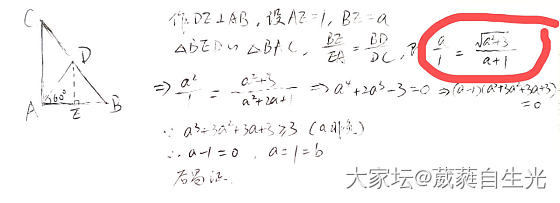 C
D
60°
A
E
B
作DE⊥AB,设AE=1, BE=a
△BED∽△BAC, BE/EA = BD/DC, a/1 = √(a²+3)/(a+1)
⇒ a²/1 = (a²+3)/(a²+2a+1) ⇒ a⁴+2a³-3=0 ⇒(a-1)(a³+3a²+3a+3)=0
∵ a³+3a²+3a+3≥3 (a非负)
∴ a-1=0, a=1=b
后易证
大家坛@葳蕤自生光